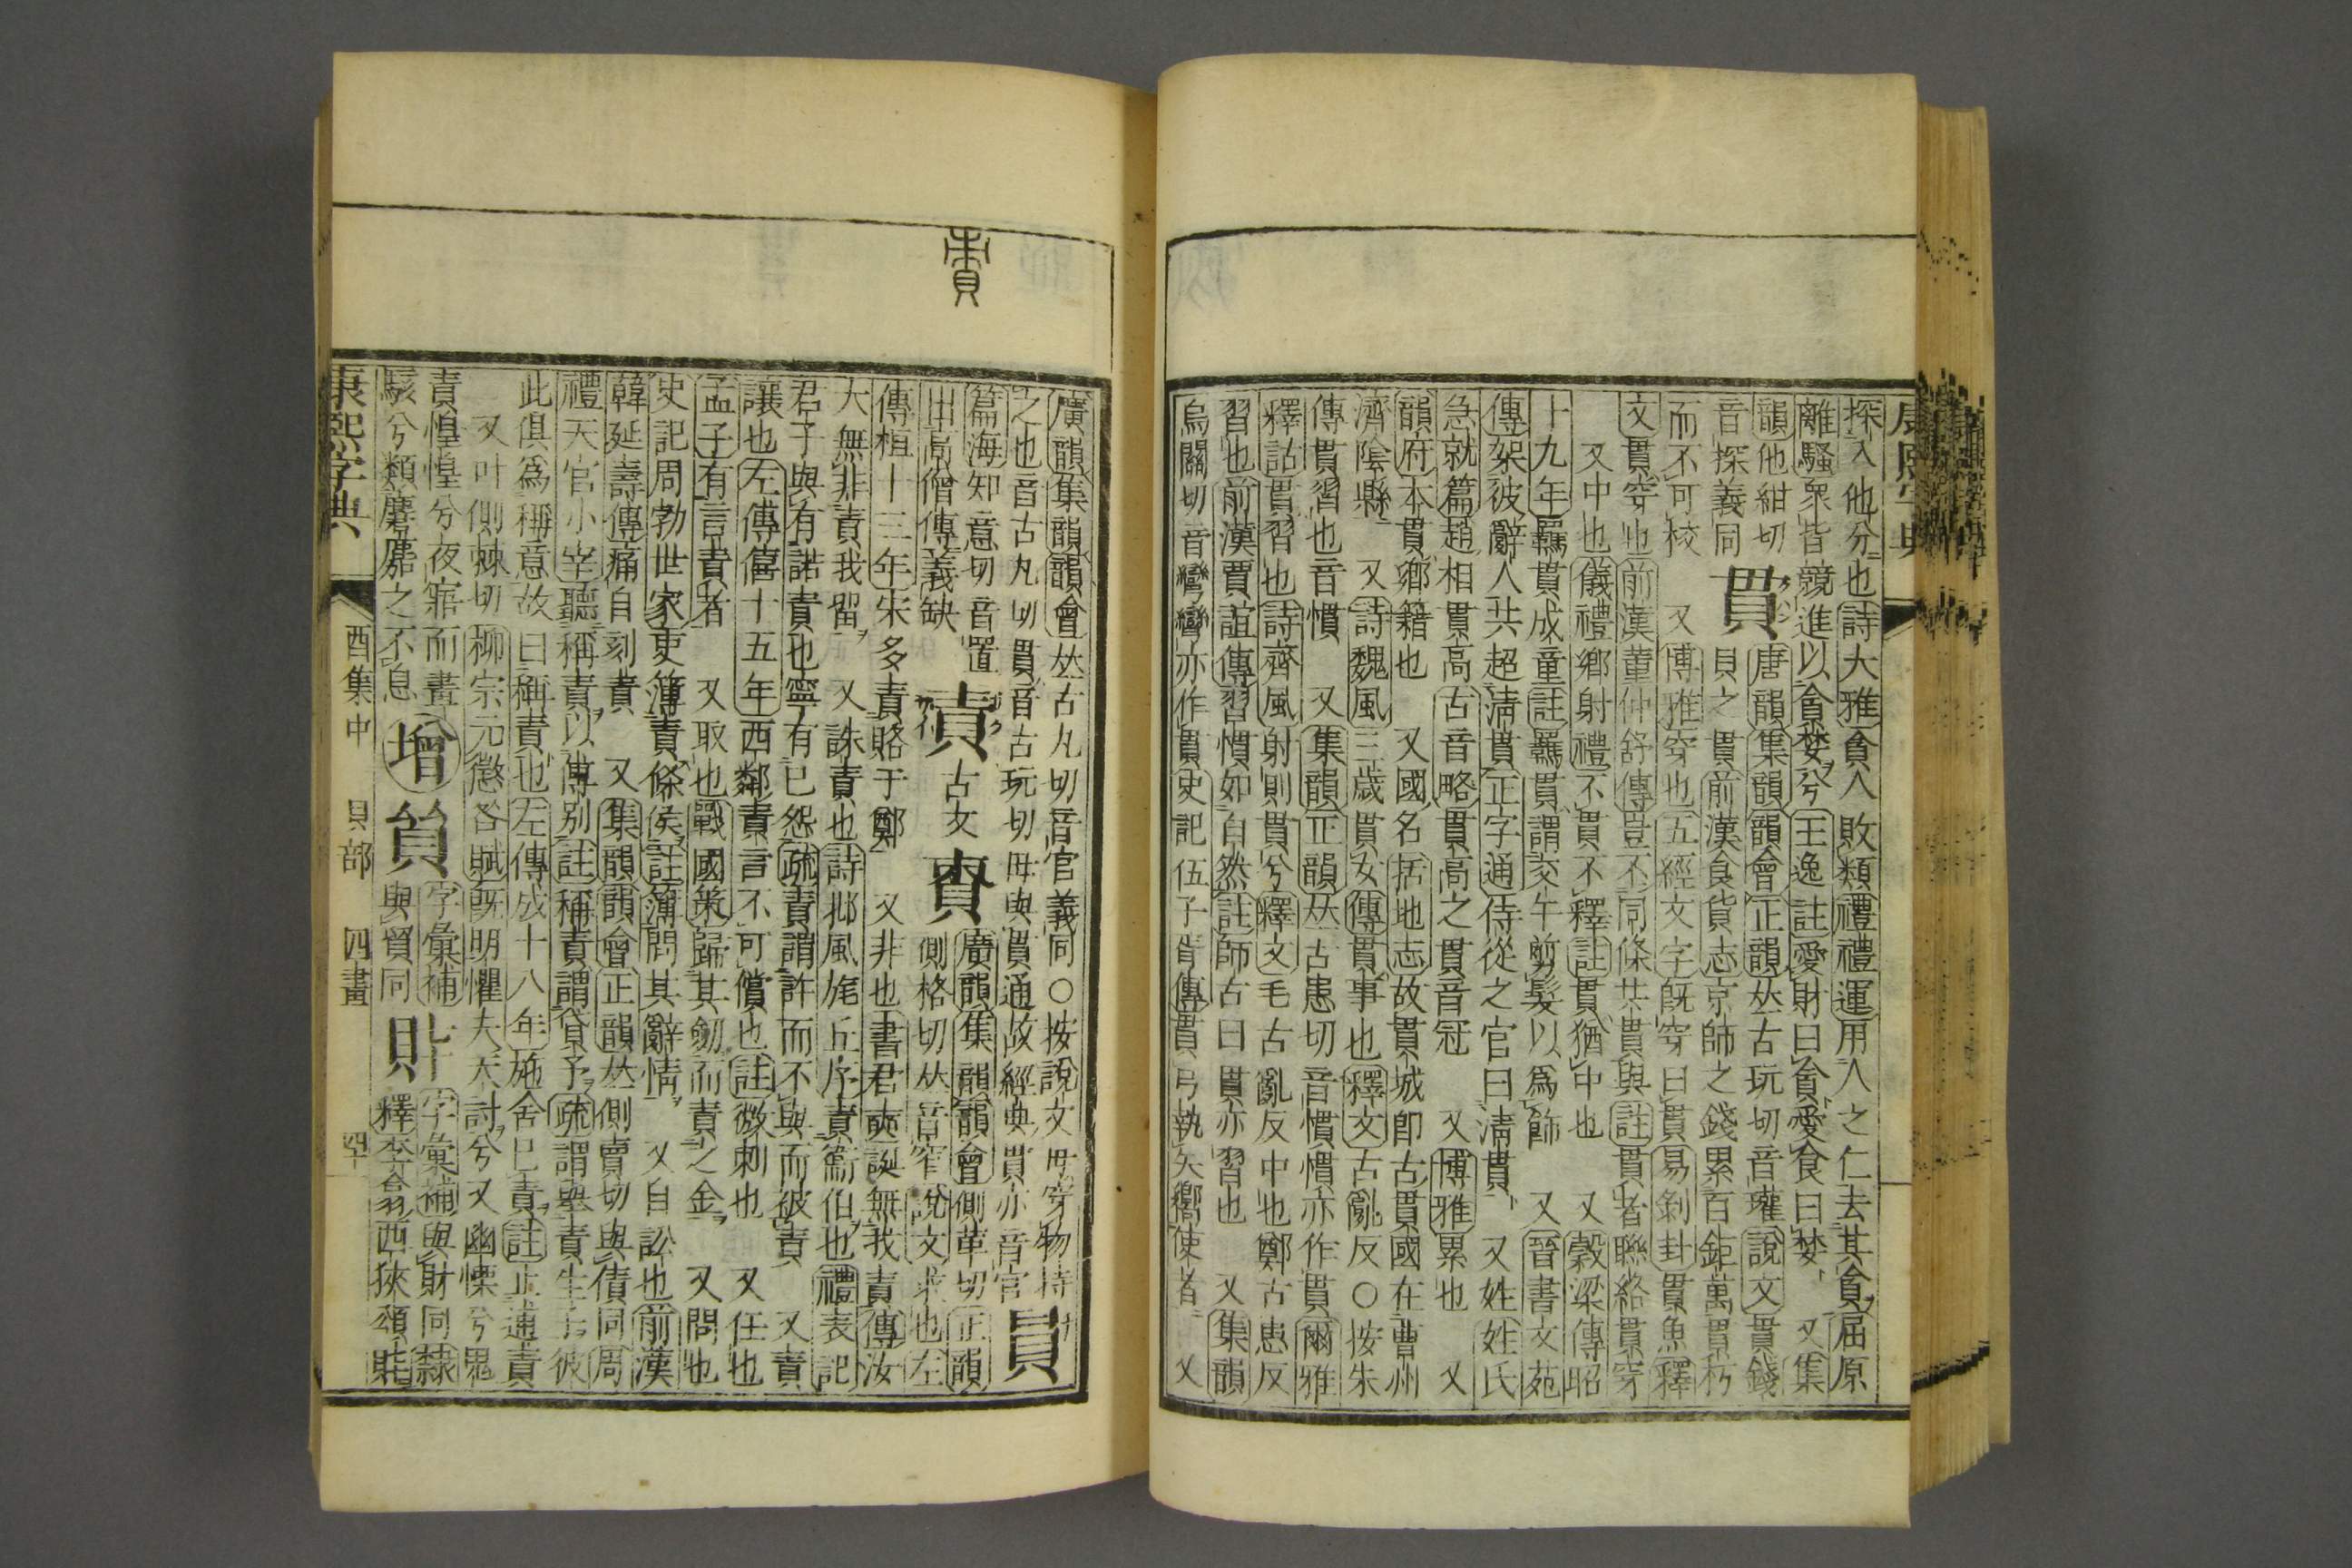 康熙字典
探入他分也詩大雅貪人敗類禮禮運用人之仁去其貪屈原
離騷眾皆競進以貪婪兮王逸註愛財曰貪愛食曰婪 又集
韻他紺切
音探義同
貫
唐韻集韻韻會正韻𠀤古玩切音瓘說文貫錢
貝之貫前漢食貨志京師之錢累百鉅萬貫朽
而不可校 又博雅穿也五經文字旣穿曰貫易剝卦貫魚釋
文貫穿也前漢董仲舒傳豈不同條共貫與註貫者聯絡貫穿
又中也儀禮鄉射禮不貫不釋註貫猶中也 又穀梁傳昭
十九年羈貫成童註羈貫謂交午剪髮以爲飾 又晉書文苑
傳架彼辭人共超淸貫正字通侍從之官曰淸貫 又姓姓氏
急就篇趙相貫高古音略貫高之貫音冠 又博雅累也 又
韻府本貫鄉籍也 又國名括地志故貫城卽古貫國在曹州
濟陰縣 又詩魏風三歲貫女傳貫事也釋文古亂反○按朱
傳貫習也音慣 又集韻正韻𠀤古患切音慣慣亦作貫爾雅
釋詁貫習也詩齊風射則貫兮釋文毛古亂反中也鄭古患反
習也前漢賈誼傳習慣如自然註師古曰貫亦習也 又集韻
烏關切音彎彎亦作貫史記伍子胥傳貫弓執矢嚮使者 又
廣韻集韻韻會𠀤古丸切音官義同○按說文毌穿物持
之也音古丸切貫音古玩切毌與貫通故經典貫亦音官
篇海知意切音置
出高僧傳義缺
責
古文
廣韻集韻韻會側革切正韻
側格切𠀤音窄說文求也左
傳桓十三年宋多責賂于鄭 又非也書君奭誕無我責傳汝
大無非責我留 又誅責也詩邶風旄丘序責衞伯也禮表記
君子與有諾責也寧有已怨疏責謂許而不與而被責 又責
讓也左傳僖十五年西鄰責言不可償也註微刺也 又任也
孟子有言責者 又取也戰國策歸其劒而責之金 又問也
史記周勃世家吏簿責條侯註簿問其辭情 又自訟也前漢
韓延壽傳痛自刻責 又集韻韻會正韻𠀤側賣切與債同周
禮天官小宰聽稱責以傅別註稱責謂貸予疏謂舉責生子彼
此俱爲稱意故曰稱責也左傳成十八年施舍已責註止逋責
又叶側棘切柳宗元懲咎賦旣明懼夫天討兮又幽慄兮鬼
責惶惶兮夜寤而晝
駭兮類麏麚之不息
增
字彙補
與貿同
字彙補與財同隸
釋李翕西狹頌
康熙字典 酉集中 貝部 四畫 四十